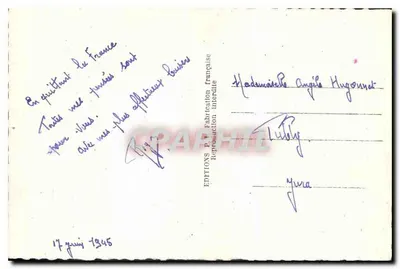 En quittant la France
Toutes mes pensées sont
pour vous.
avec mes plus affectueux baisers
17 juin 1945
EDITIONS P. I. Fabrication Française
Reproduction interdite
Mademoiselle Angèle Hugonnet
Jura